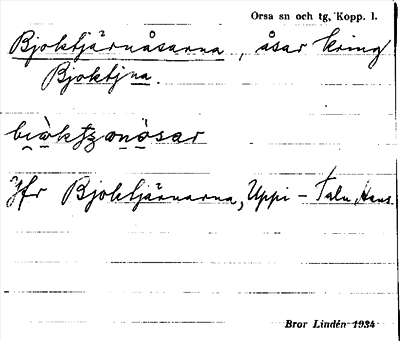 Orsa sn och tg, Kopp. l.
Bjoktjärnåsarna, åsar kring
Bjoktjna.
Jfr Bjoktjärnarna, Uppi - Taln, Hans.
Bror Lindén 1934